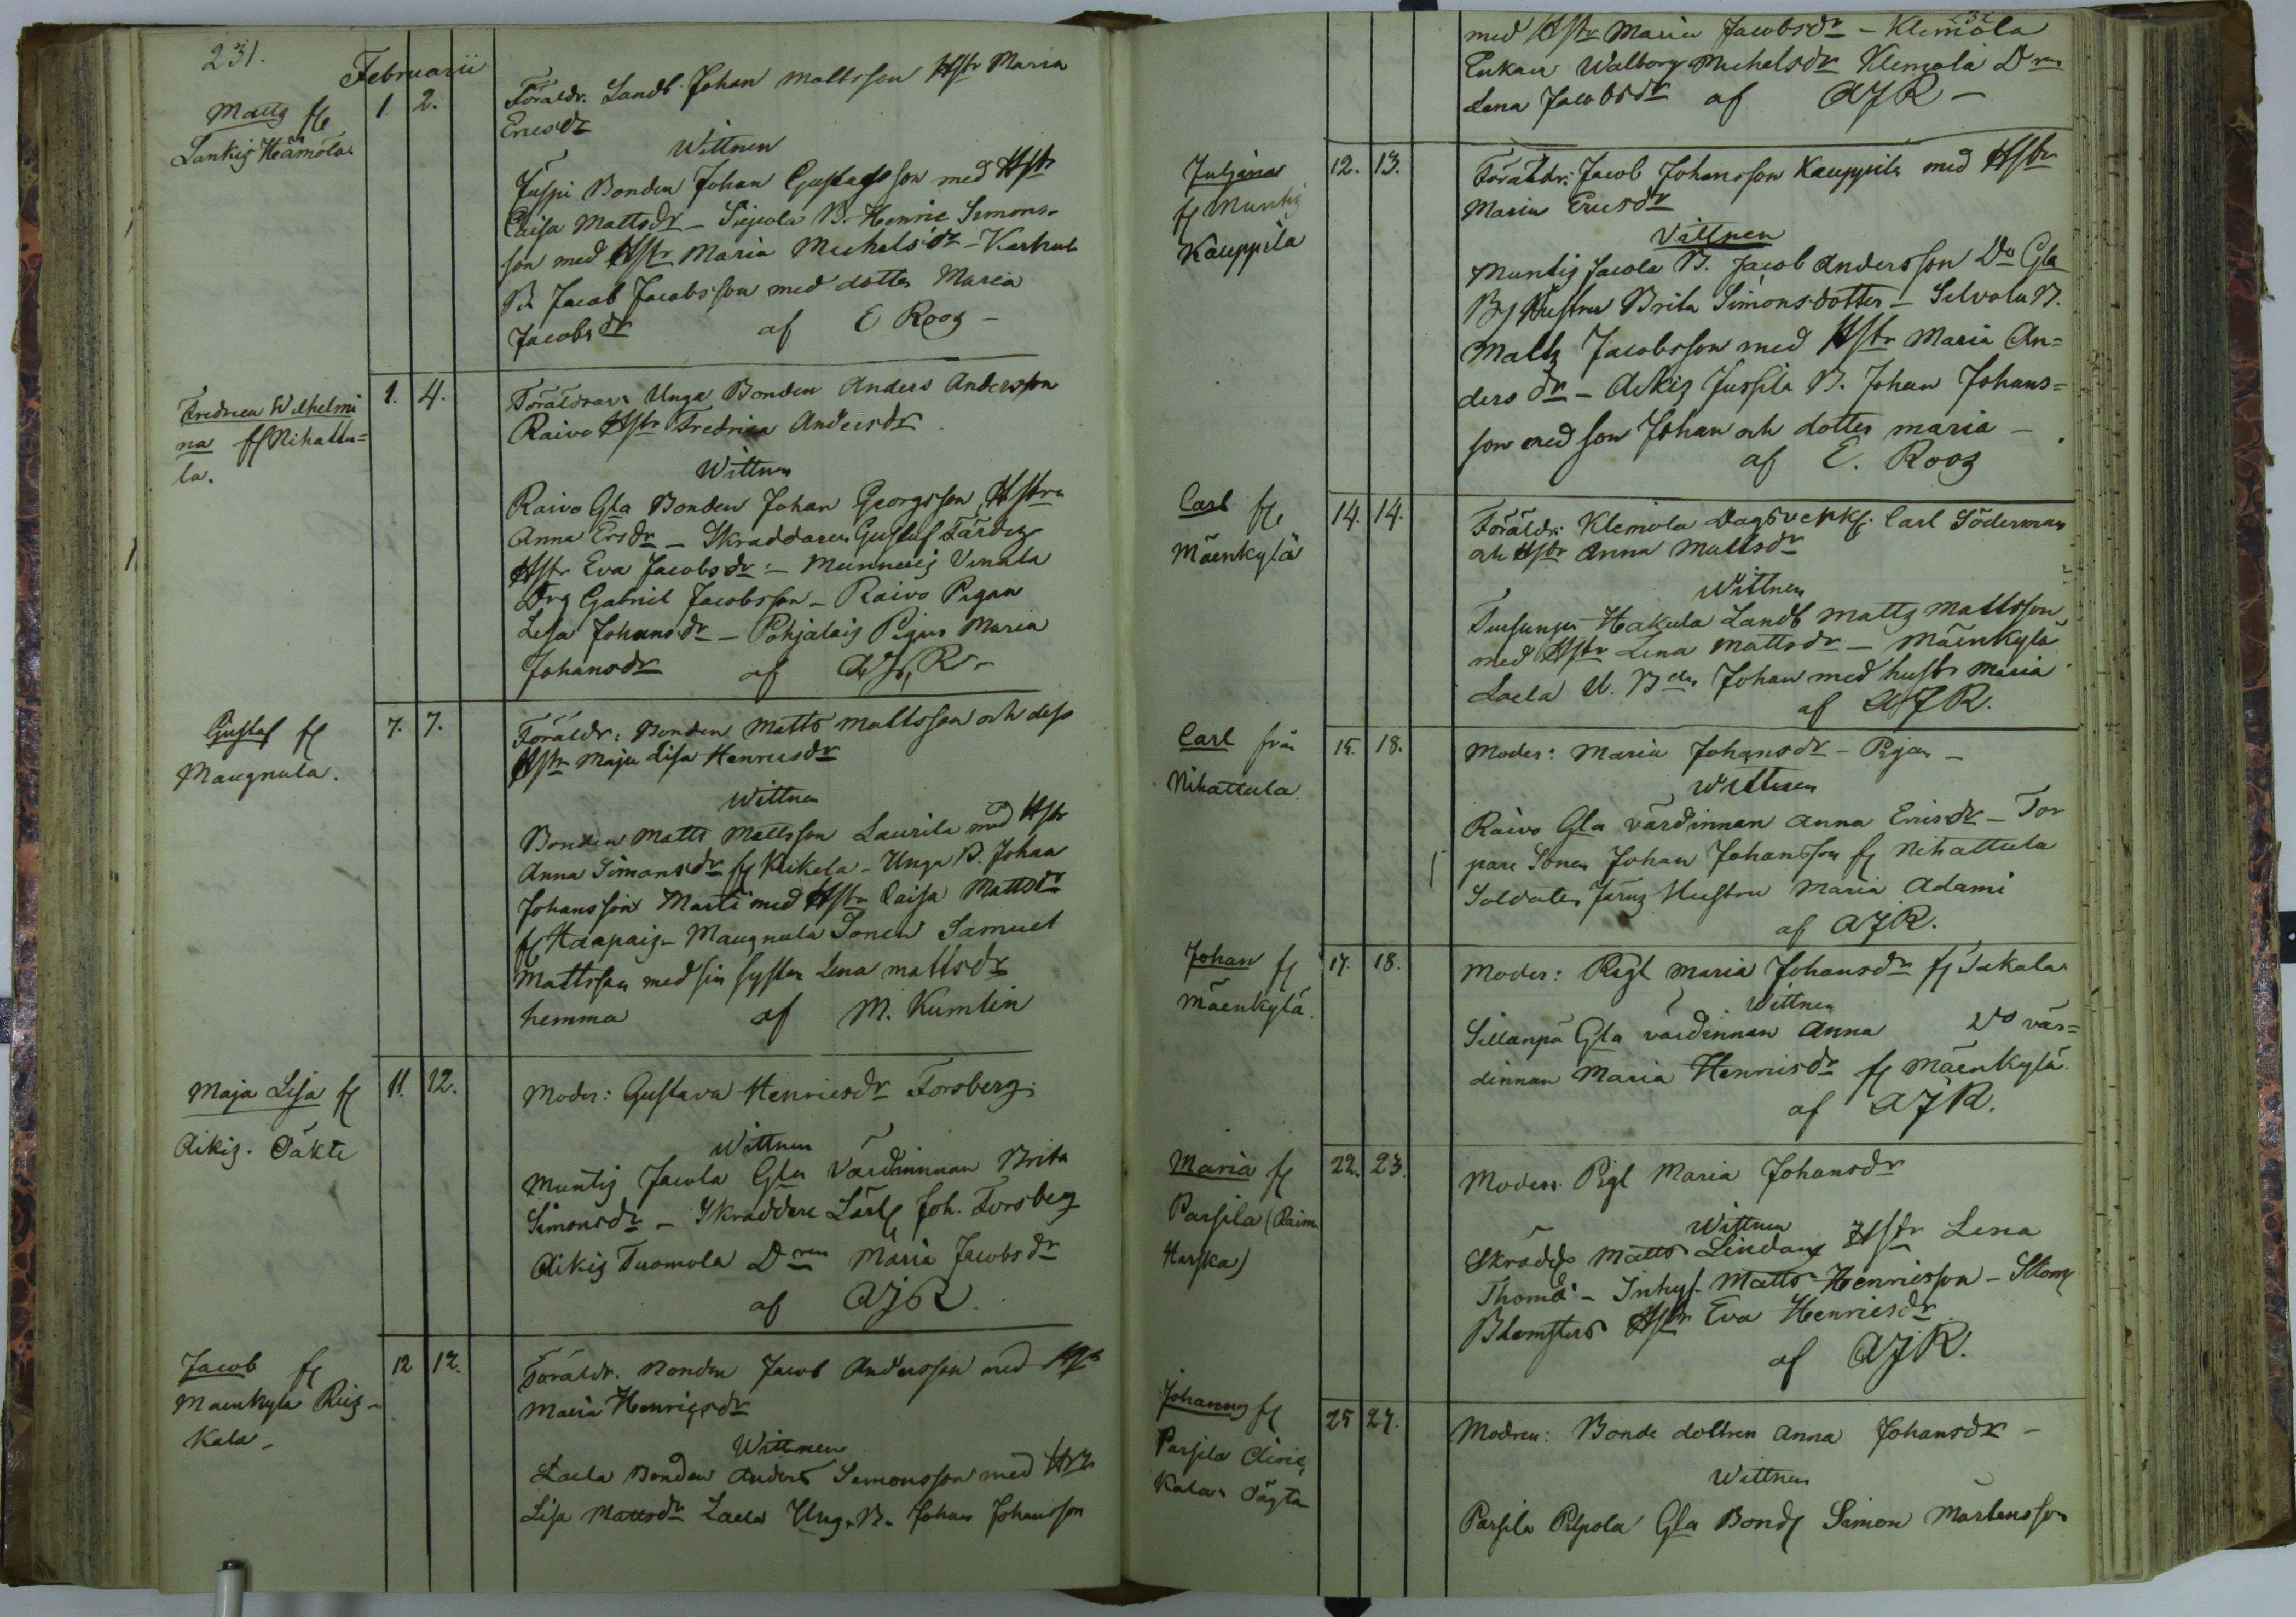 231.
Februarii
Matts fr
Lankis Heämola
1. 2.
Föräldr. Landb. Johan Mattsson Hstr Maria
Ericsdr
Wittnen
Juspi Bonden Johan Gustafsson med Hstr
Caisa Mattsdr - B. Henric Simons-
son med Hstr Maria Michelsdr -
B. Jacob Jacobsson med dotter Maria
Jacobsdr af E Roos -
Fredrica Wilhelmi
na fr Nihattu=
la.
1. 4.
Föräldrar: Unga Bonden Anders Andersson
Raivo Hstr Fredrica Andersdr
Wittnen
Raivo Gla Bonden Johan Georgsson, Hstru
Anna Ersdr - Skraddaren Gustaf Färdig
Hstr Eva Jacobsdr: - Vinala
Drg Gabriel Jacobsson - Raivo Pigan
Lisa Johansdr - Pohjalais Pigan Maria
Johansdr af AJR -
Gustaf fr
Maugnula.
7. 7.
Föräldr: Bonden Matts Mattsson och dess
Hstr Maja Lisa Henricsdr
Wittnen
Bonden Matts Mattsson Laurila med Hstr
Anna Simonsdr fr Kikela - Unga B. Johan
Johansson Marti med Hstr Caisa Mattsdr
fr Haapais - Maugnula Sonen Samuel
Mattsson med sin syster Lena Mattsdr
hemma af M. Kumlin
Maja Lisa fr
Aikis. Päkti
11. 12.
Moder: Gustava Henricsdr Forsberg.
Wittnen
Muntis Jacola Gla Värdinnan Brita
Simonsdr - Skraddare Lärl. Joh. Forsberg
Aikis Tuomola Dren Maria Jacobsdr
af AJR.
Jacob fr
Mäenkylä Reis-
kala -
12 12.
Föräldr. Bonden Jacob Andersson med Hstr
Maria Henricsdr
Wittnen
Laela Bonden Anders Simonsson med Hstr
Lisa Mattsdr Laela Ung. B. Johan Johansson
232
med Hstr Maria Jacobsdr - Klemola
Enkan Walborg Michelsdr Klemola Dren
Lena Jacobsdr af AJR -
Juliana
fr Muntis
Kauppila
12. 13.
Föräldr: Jacob Johansson Kauppila med Hstr
Maria Ericsdr
Vittnen
Muntis Jacola B. Jacob Andersson Do Gla
Bs Hustru Brita Simonsdotter - Selvola B.
Matts Jacobsson med Hstr Maria An=
dersdr - Aikis Jussila B. Johan Johans=
son med son Johan och dotter Maria -
af E. Roos
Carl fr
Mäenkylä
14. 14.
Föräldr: Klemola Dagsverkk. Carl Söderman
och Hstr Anna Mattsdr
Wittnen
Hakula Landb Matts Mattsson
med Hstr Lena Mattsdr - Mäenkylä
Laela U. Bden Johan med hustr Maria
af AJR.
Carl från
Nihattula
15. 18.
Moder: Maria Johansdr - Pigan -
Wittnen
Raivo Gla värdinnan Anna Ericsdr - Tor
pare Sonen Johan Johansson fr Nihattula
Soldaten Järns Hustru Maria Adami
af AJR.
Johan fr
Mäenkylä.
17. 18.
Moder: Pigl Maria Johansdr fr Takala
Wittnen
Sillanpä Gla värdinnan Anna Do vär=
dinnan Maria Henricsdr fr Mäenkylä
af AJR.
Maria fr
Parsila (Raim
Harska)
22. 23.
Moder: Pigl Maria Johansdr
Wittnen
Skradds Matts Lindans Hstr Lena
Thomæ - Inhys. Matts Henricsson - Skom
Blomsters Hstr Eva Henricsdr
af AJR.
Johannes fr
Parsila
25 27.
Modren: Bonde dottren Anna Johansdr -
Wittnen
Parsila Pilpola Gla Bond Simon Mårtensson